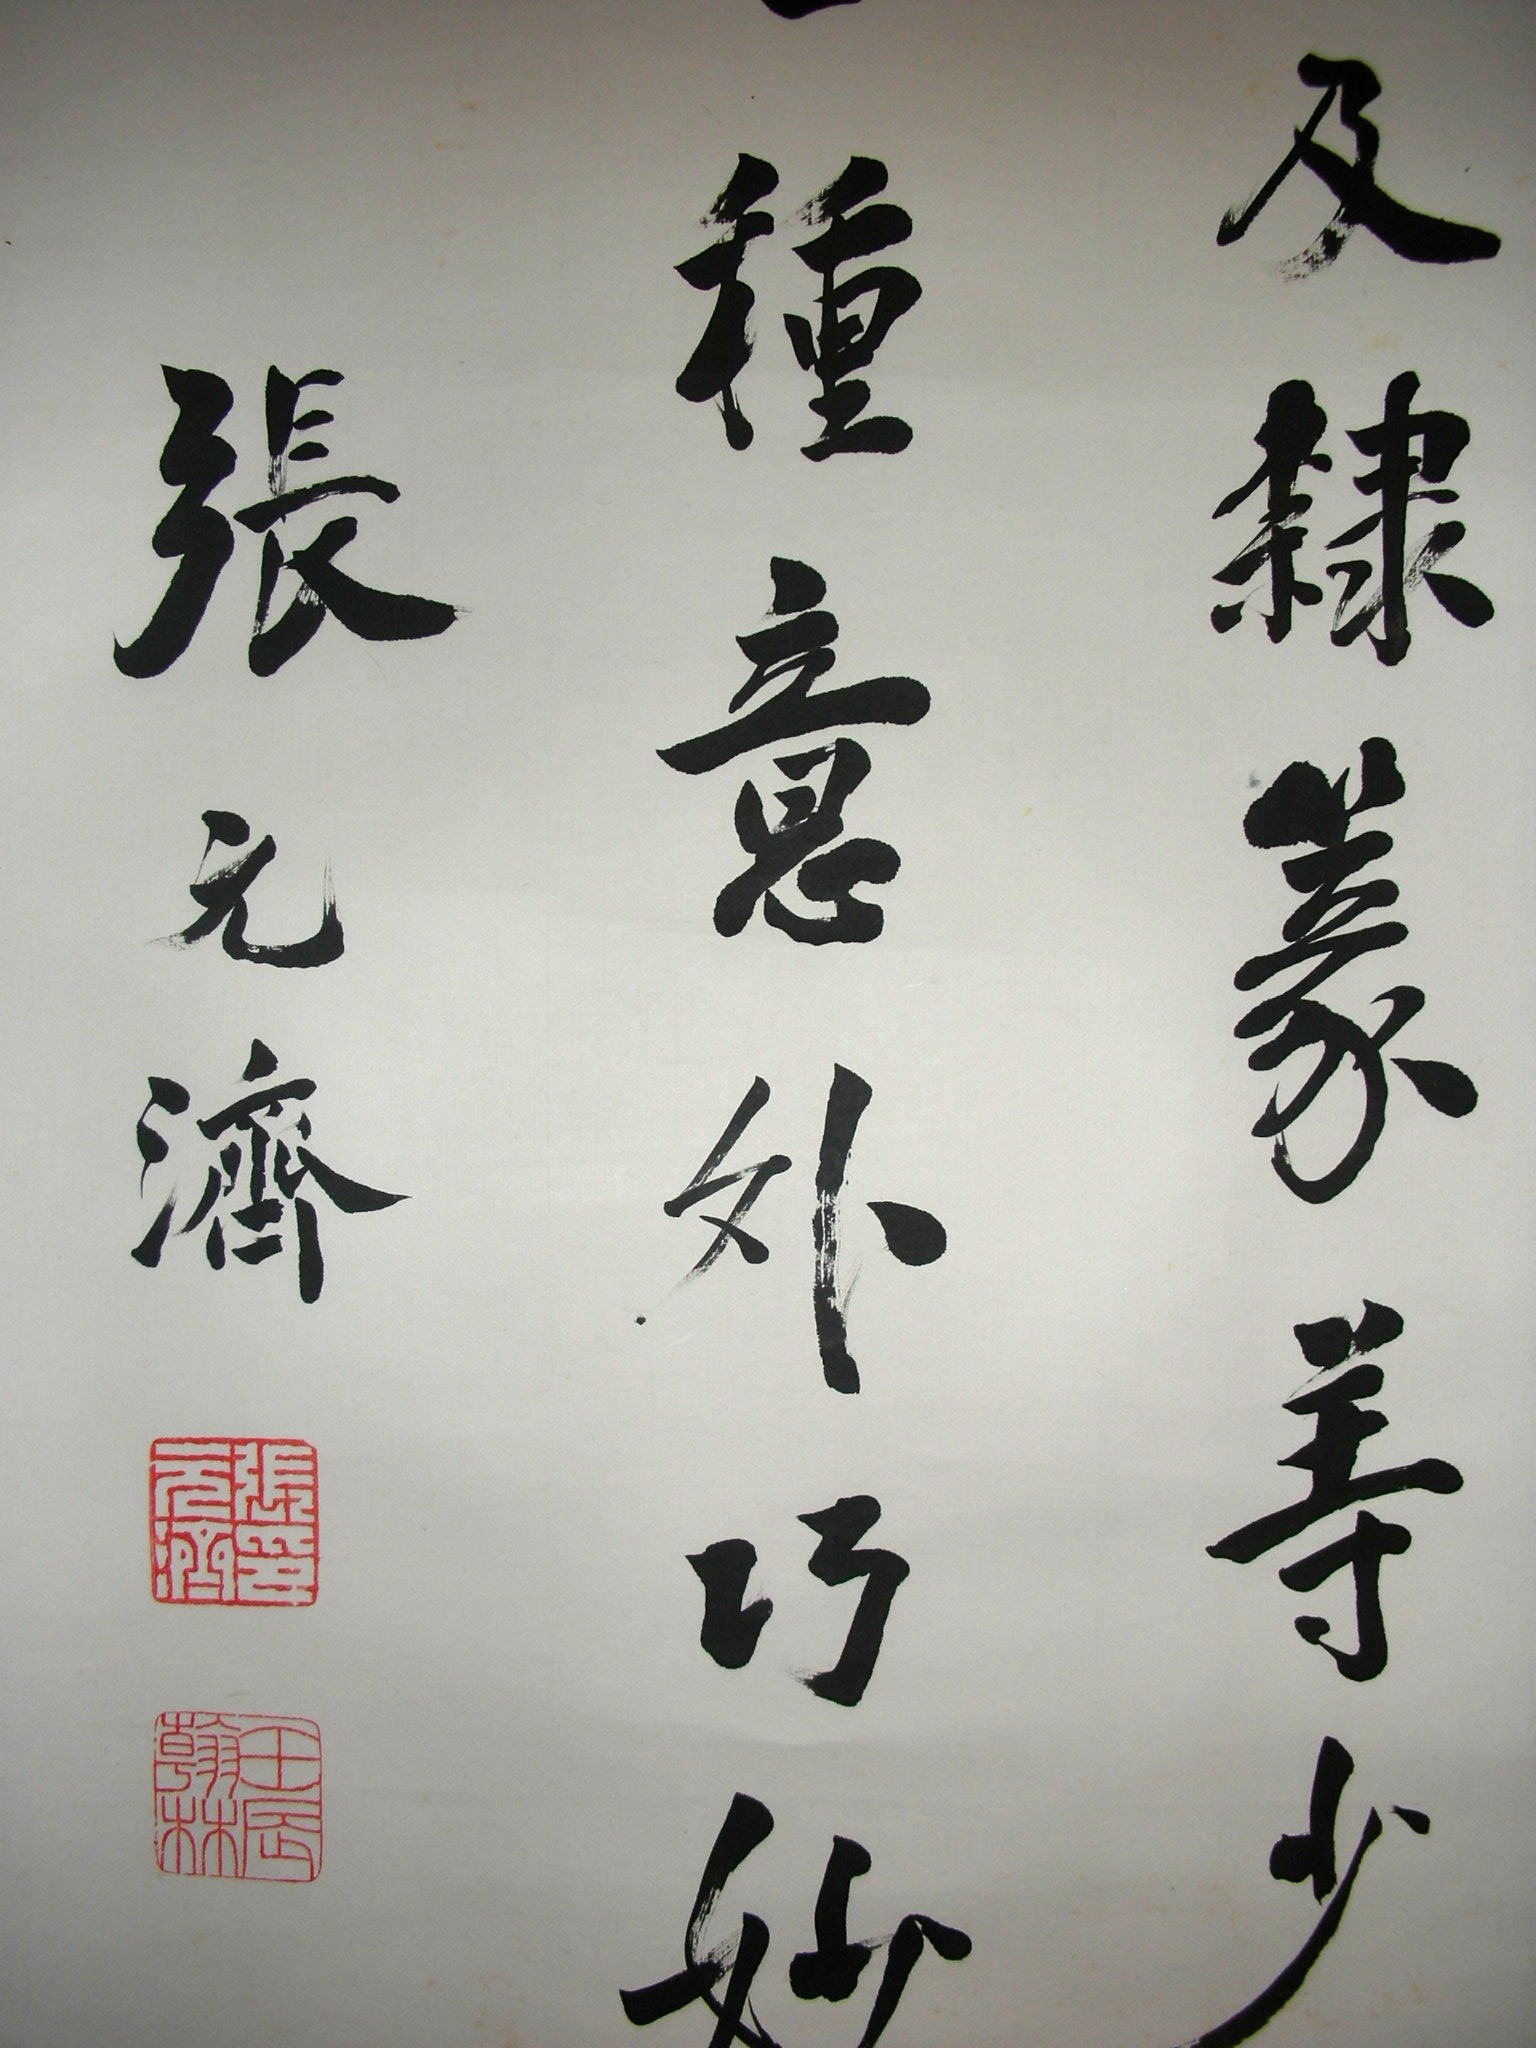 及隸篆等少
種意外巧妙
張元濟
張元濟印
壬辰翰林